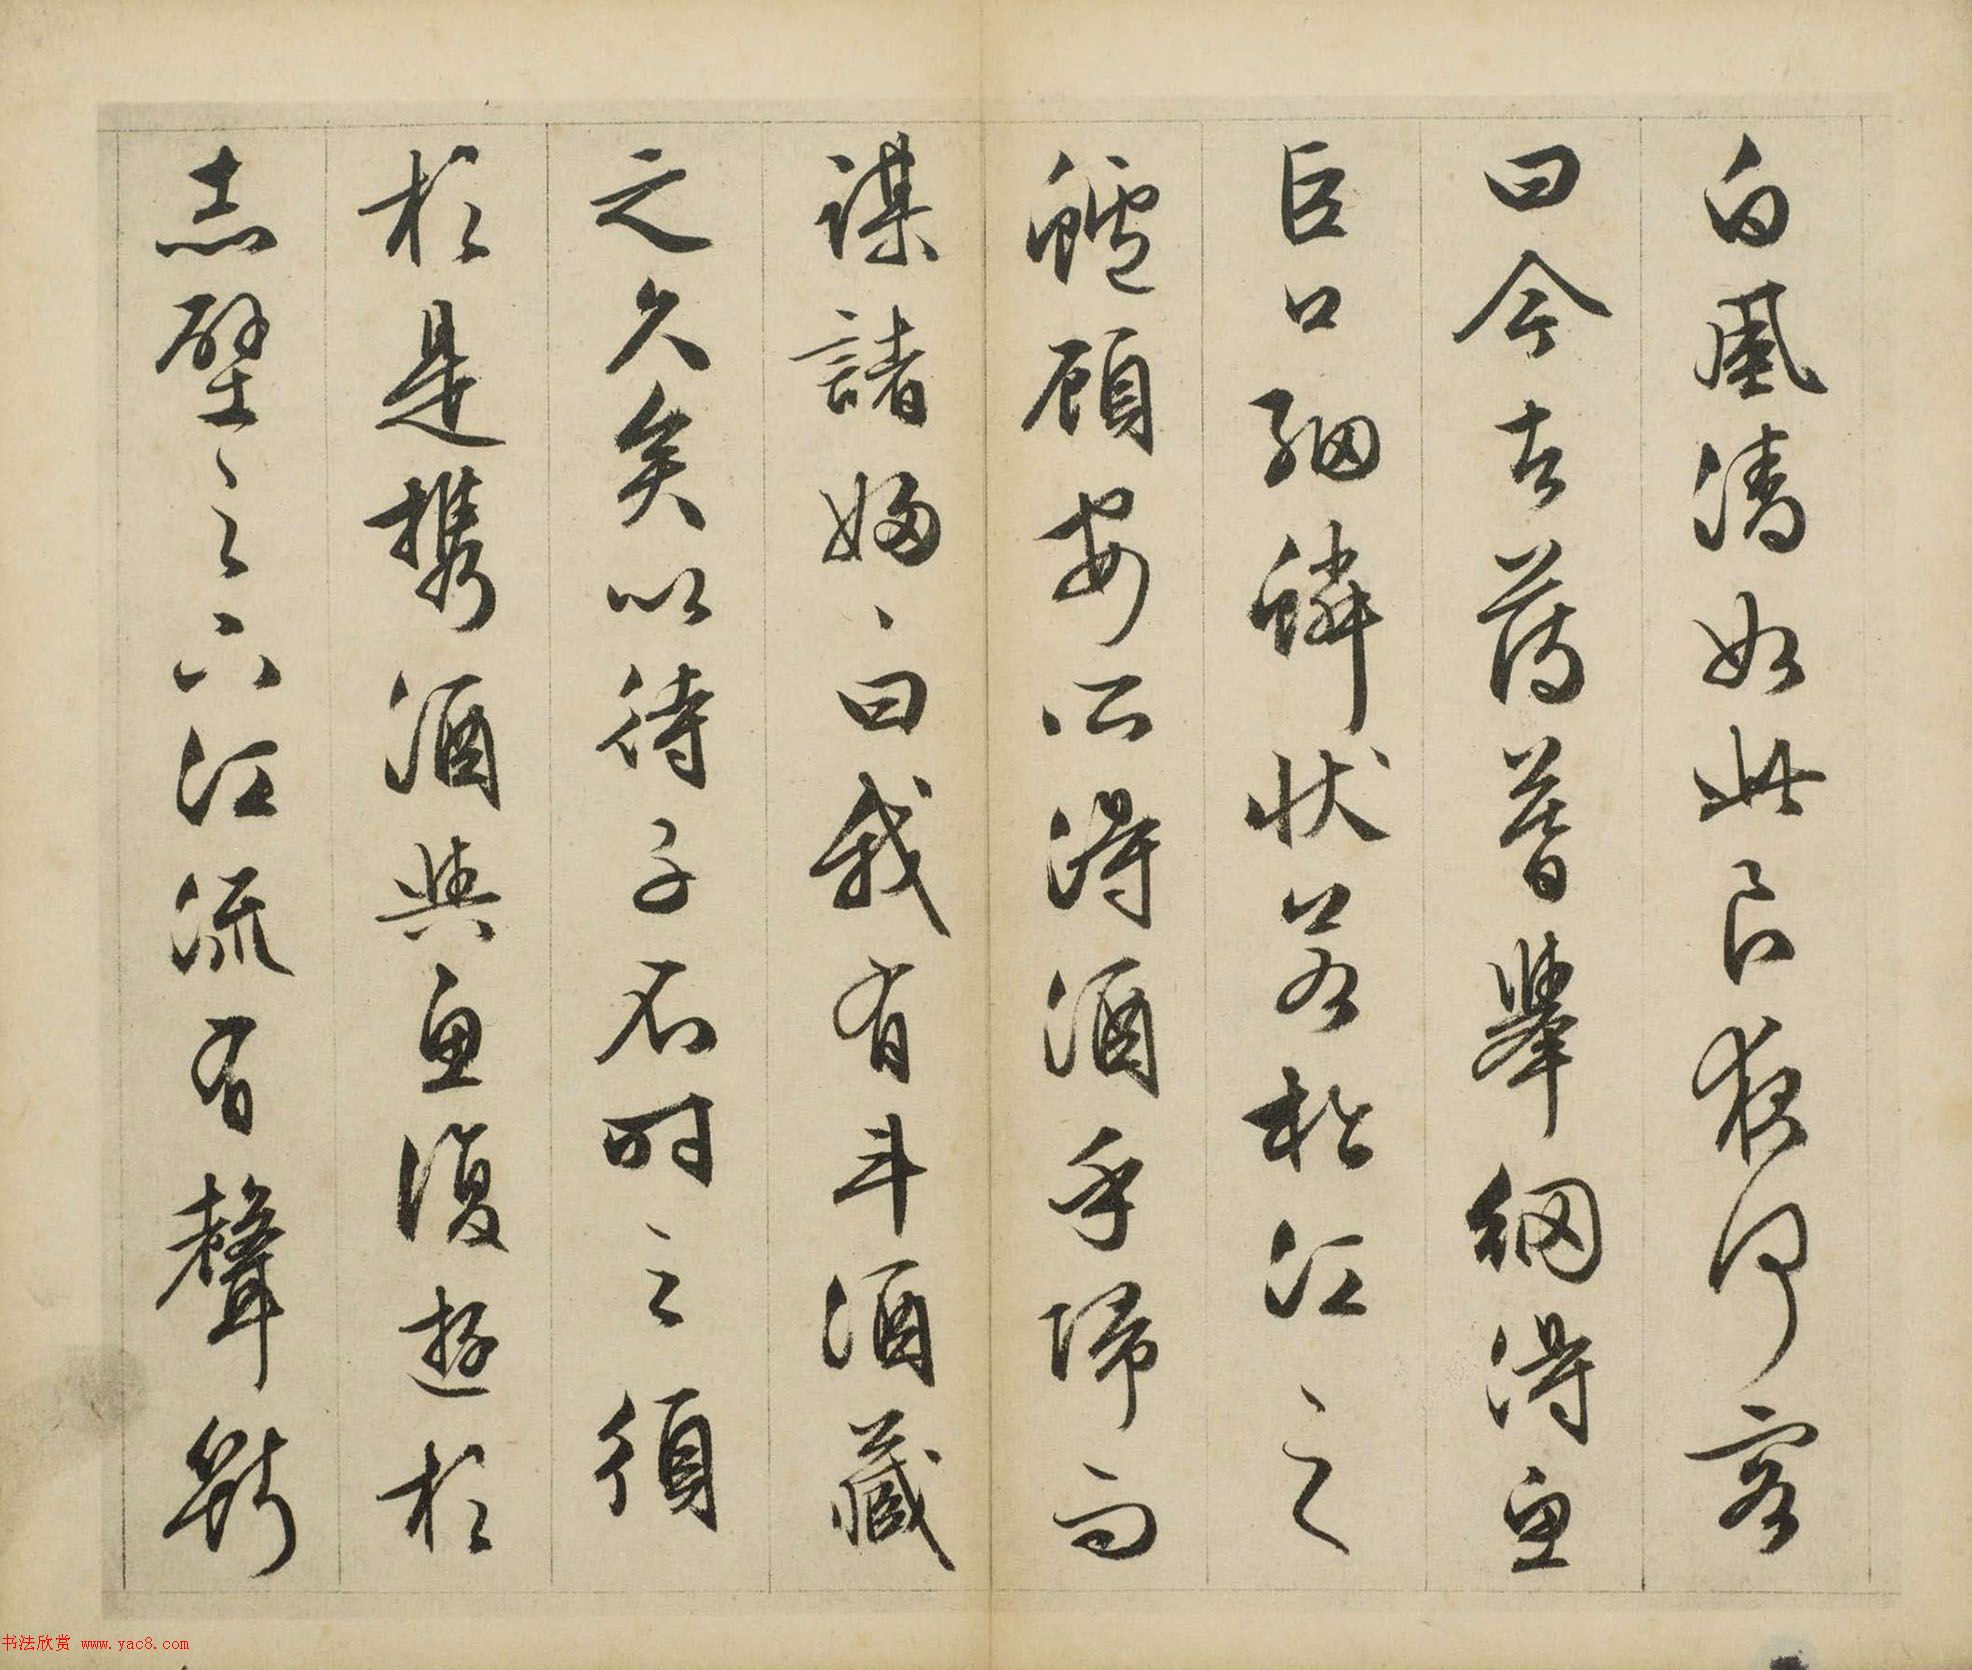 白風清如此良夜何客
曰今者薄暮舉網得魚
巨口細鱗狀若松江之
鱸顧安所得酒乎歸而
謀諸婦〻曰我有斗酒藏
之久矣以待子不時之須
於是攜酒與魚復遊於
赤壁之下江流有聲斷
书法欣赏 www.yac8.com